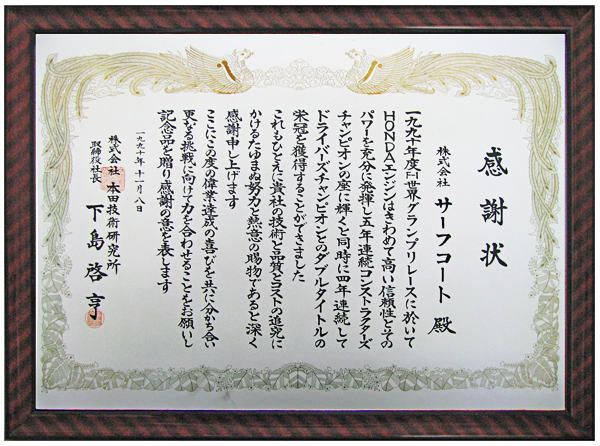 感謝状
株式会社 サーフコート 殿
一九九十年度F-1世界グランプリレースに於いて
HONDAエンジンはきわめて高い信頼性とその
パワーを充分に発揮し五年連続コンストラクターズ
チャンピオンの座に輝くと同時に四年連続して
ドライバーズチャンピオンとのダブルタイトルの
栄冠を獲得することができました
これもひとえに貴社の技術と品質とコストの追究に
かけるたゆまぬ努力と熱意の賜物であると深く
感謝申し上げます
ここにこの度の偉業達成の喜びを共に分かち合い
更なる挑戦に向けて力を合わせることをお願いし
記念品を贈り感謝の意を表します
一九九十年十一月八日
株式会社 本田技術研究所
取締役社長 下島啓亨